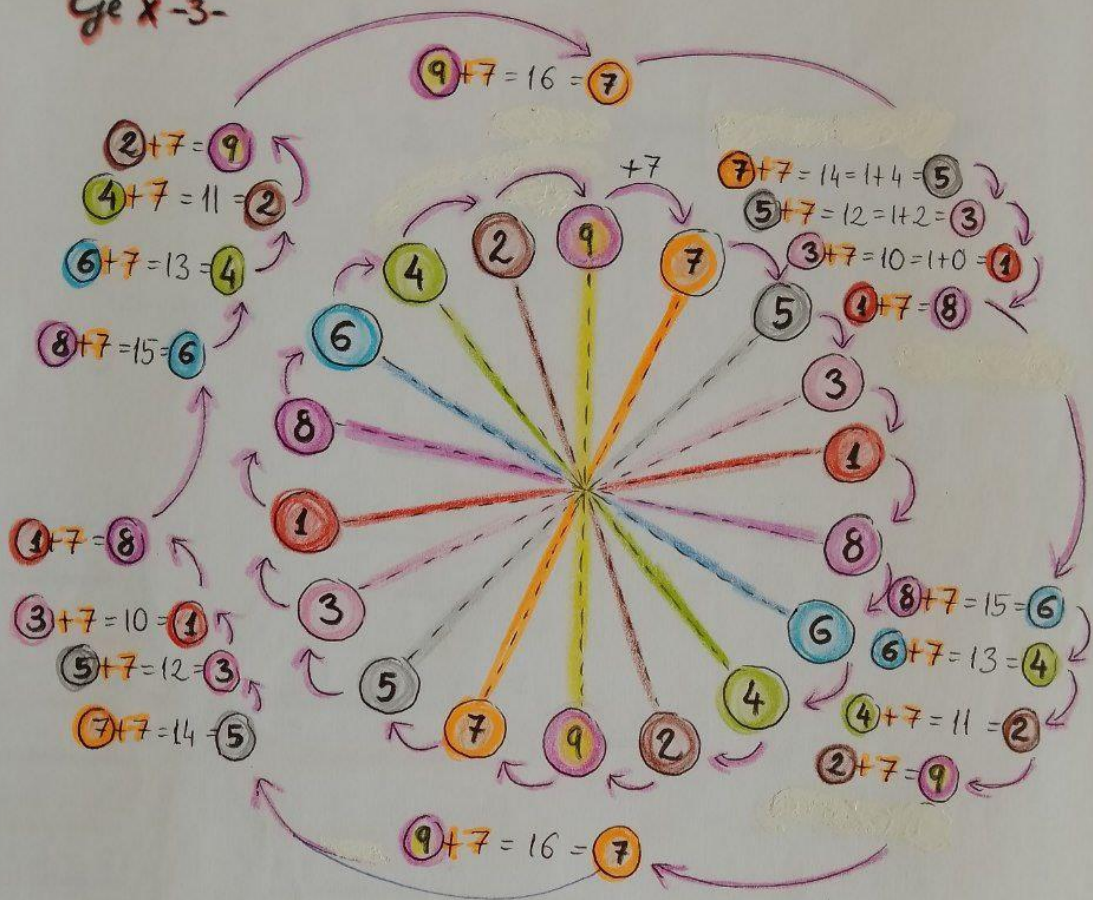 x -3-
9+7 = 16 = 7
2+7 = 9
4+7 = 11 = 2
6+7 = 13 = 4
8+7 = 15 = 6
+7
7+7 = 14 = 1+4 = 5
5+7 = 12 = 1+2 = 3
3+7 = 10 = 1+0 = 1
1+7 = 8
9
7
5
3
1
8
6
4
2
9
7
5
3
1
8
6
4
2
1+7 = 8
3+7 = 10 = 1
5+7 = 12 = 3
7+7 = 14 = 5
8+7 = 15 = 6
6+7 = 13 = 4
4+7 = 11 = 2
2+7 = 9
9+7 = 16 = 7